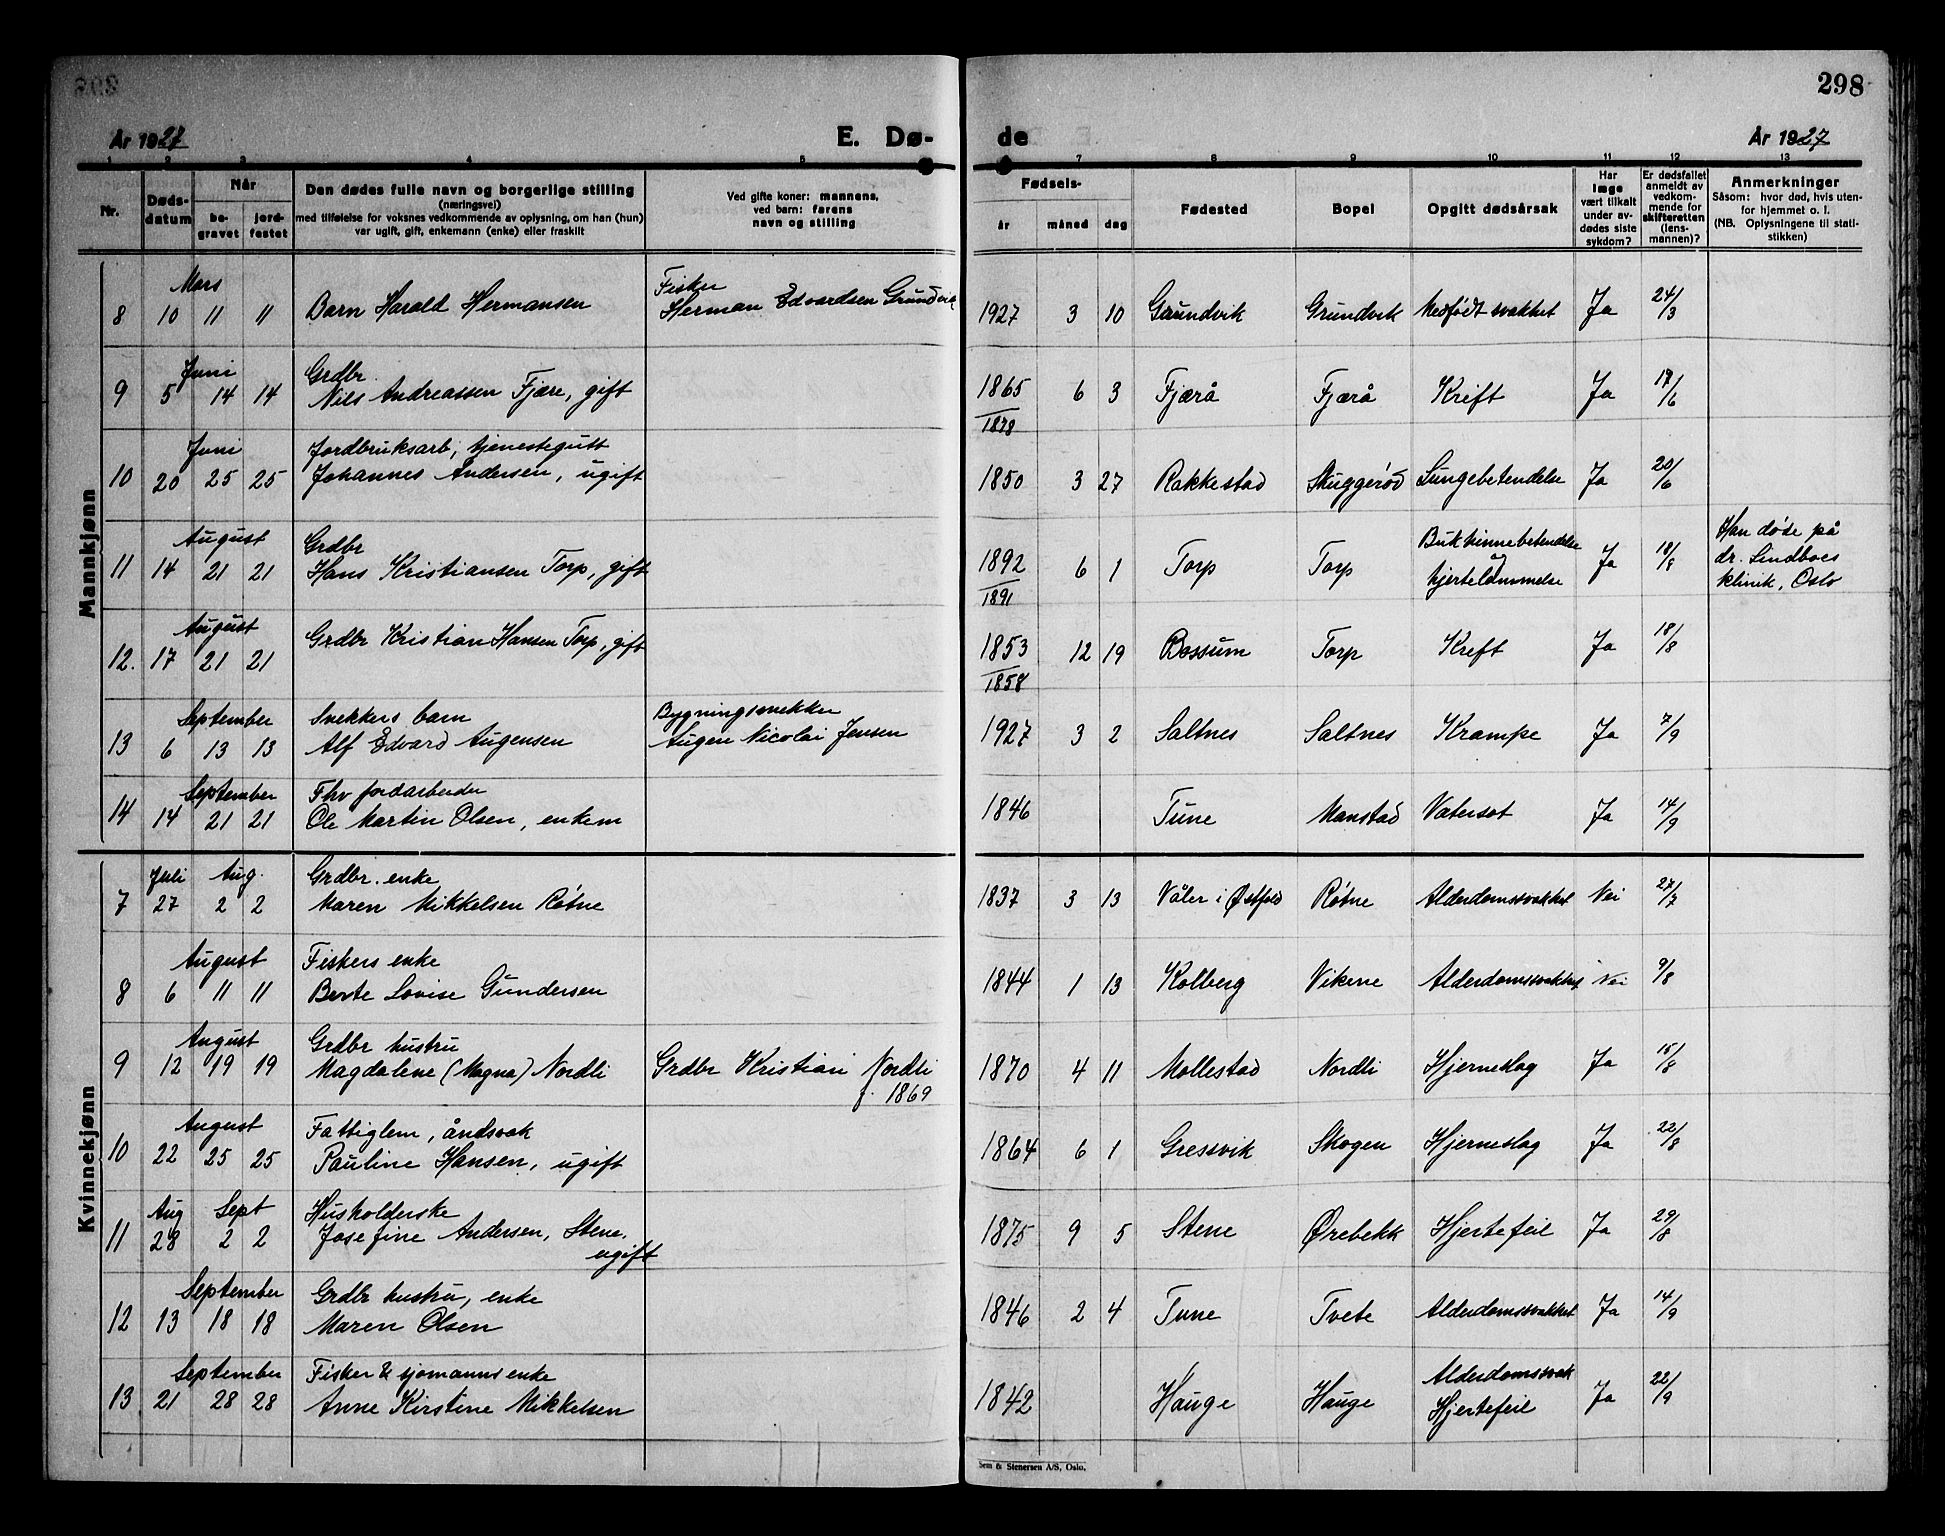 298
År 1927 E. Dø- de År 1927
1 2 3 4 5 7 8 9 10 11 12 13
Nr.
Døds-
datum
Når
be-
gravet
jord-
festet
Den dødes fulle navn og borgerlige stilling
(næringsvei)
med tilføielse for voksnes vedkommende av oplysning, om han (hun)
var ugift, gift, enkemann (enke) eller fraskilt
Ved gifte koner: mannens,
ved barn: farens
navn og stilling
Fødsels-
år måned dag
Fødested
Bopel
Opgitt dødsårsak
Har
læge
vært tilkalt
under av-
dødes siste
sykdom?
Er dødsfallet
anmeldt av
vedkom-
mende for
skifteretten
(lens-
mannen)?
Anmerkninger
Såsom: hvor død, hvis uten-
for hjemmet o. l.
(NB. Oplysningene til stati-
stikken)
Mannkjønn
Mars Fisker
8 10 11 11 Barn Harald Hermansen Herman Edvardsen Grundvik 1927 3 10 Grundvik Grundvik Medfødt svakhet Ja 24/3
Juni Grdbr.
9 5 14 14 Nils Andreassen Fjære, gift 1865 6 3 Fjærå Fjærå Kreft Ja 17/6
1878
Juni Jordbruksarb, tjenestegutt
10 20 25 25 Johannes Andersen, ugift 1850 3 27 Rakkestad Skuggerød Lungebetendelse Ja 20/6
August Grdbr Bukhinnebetendelse Han døde på
11 14 21 21 Hans Kristiansen Torp, gift 1892 6 1 Torp Torp og Ja 18/8 dr. Lindboes
1891 hjertelammelse klinik, Oslo
August
12. 17 21 21 Grdbr Kristian Hansen Torp, gift 1853 12 19 Bossum Torp Kreft Ja 18/8
1858
September Snekkers barn Bygningssnekker
13 6 13 13 Alf Edvard Augensen Augen Nicolai Jensen 1927 3 2 Saltnes Saltnes Krampe Ja 7/9
September Fhv jordarbeider
14 14 21 21 Ole Martin Olsen, enkem 1846 Tune Manstad Vatersot Ja 14/9
Kvinnekjønn
Juli Aug. Grdbr. enke
7 27 2 2 Maren Mikkelsen Røtne 1837 3 13 Våler i Østfold Røtne Alderdomssvakhet Nei 27/7
August Fiskers enke
8 6 11 11 Berte Lovise Gundersen 1844 1 13 Kolberg Vikene Alderdomssvakhet Nei 9/8
August Grdbr hustru
9 12 19 19 Magdalene (Magna) Nordli Grdbr Kristian Nordli 1870 4 11 Mollestad Nordli Hjerneslag Ja 15/8
f. 1869
August Fattiglem, åndsvak
10 22 25 25 Pauline Hansen, ugift 1864 6 1 Gressvik Skogen Hjerneslag Ja 22/8
Aug Sept Husholderske
11 28 2 2 Josefine Andersen, Stene, 1875 9 5 Stene Ørebekk Hjertefeil Ja 29/8
ugift
September Grdbr hustru, enke
12 13 18 18 Maren Olsen 1846 2 4 Tune Tvete Alderdomssvakhet Ja 14/9
September Fisker & sjomanns enke Alderdomssvak
13 21 28 28 Anne Kirstine Mikkelsen 1842 Hauge Hauge Hjertefeil Ja 22/9
Sem & Stenersen A/S, Oslo.